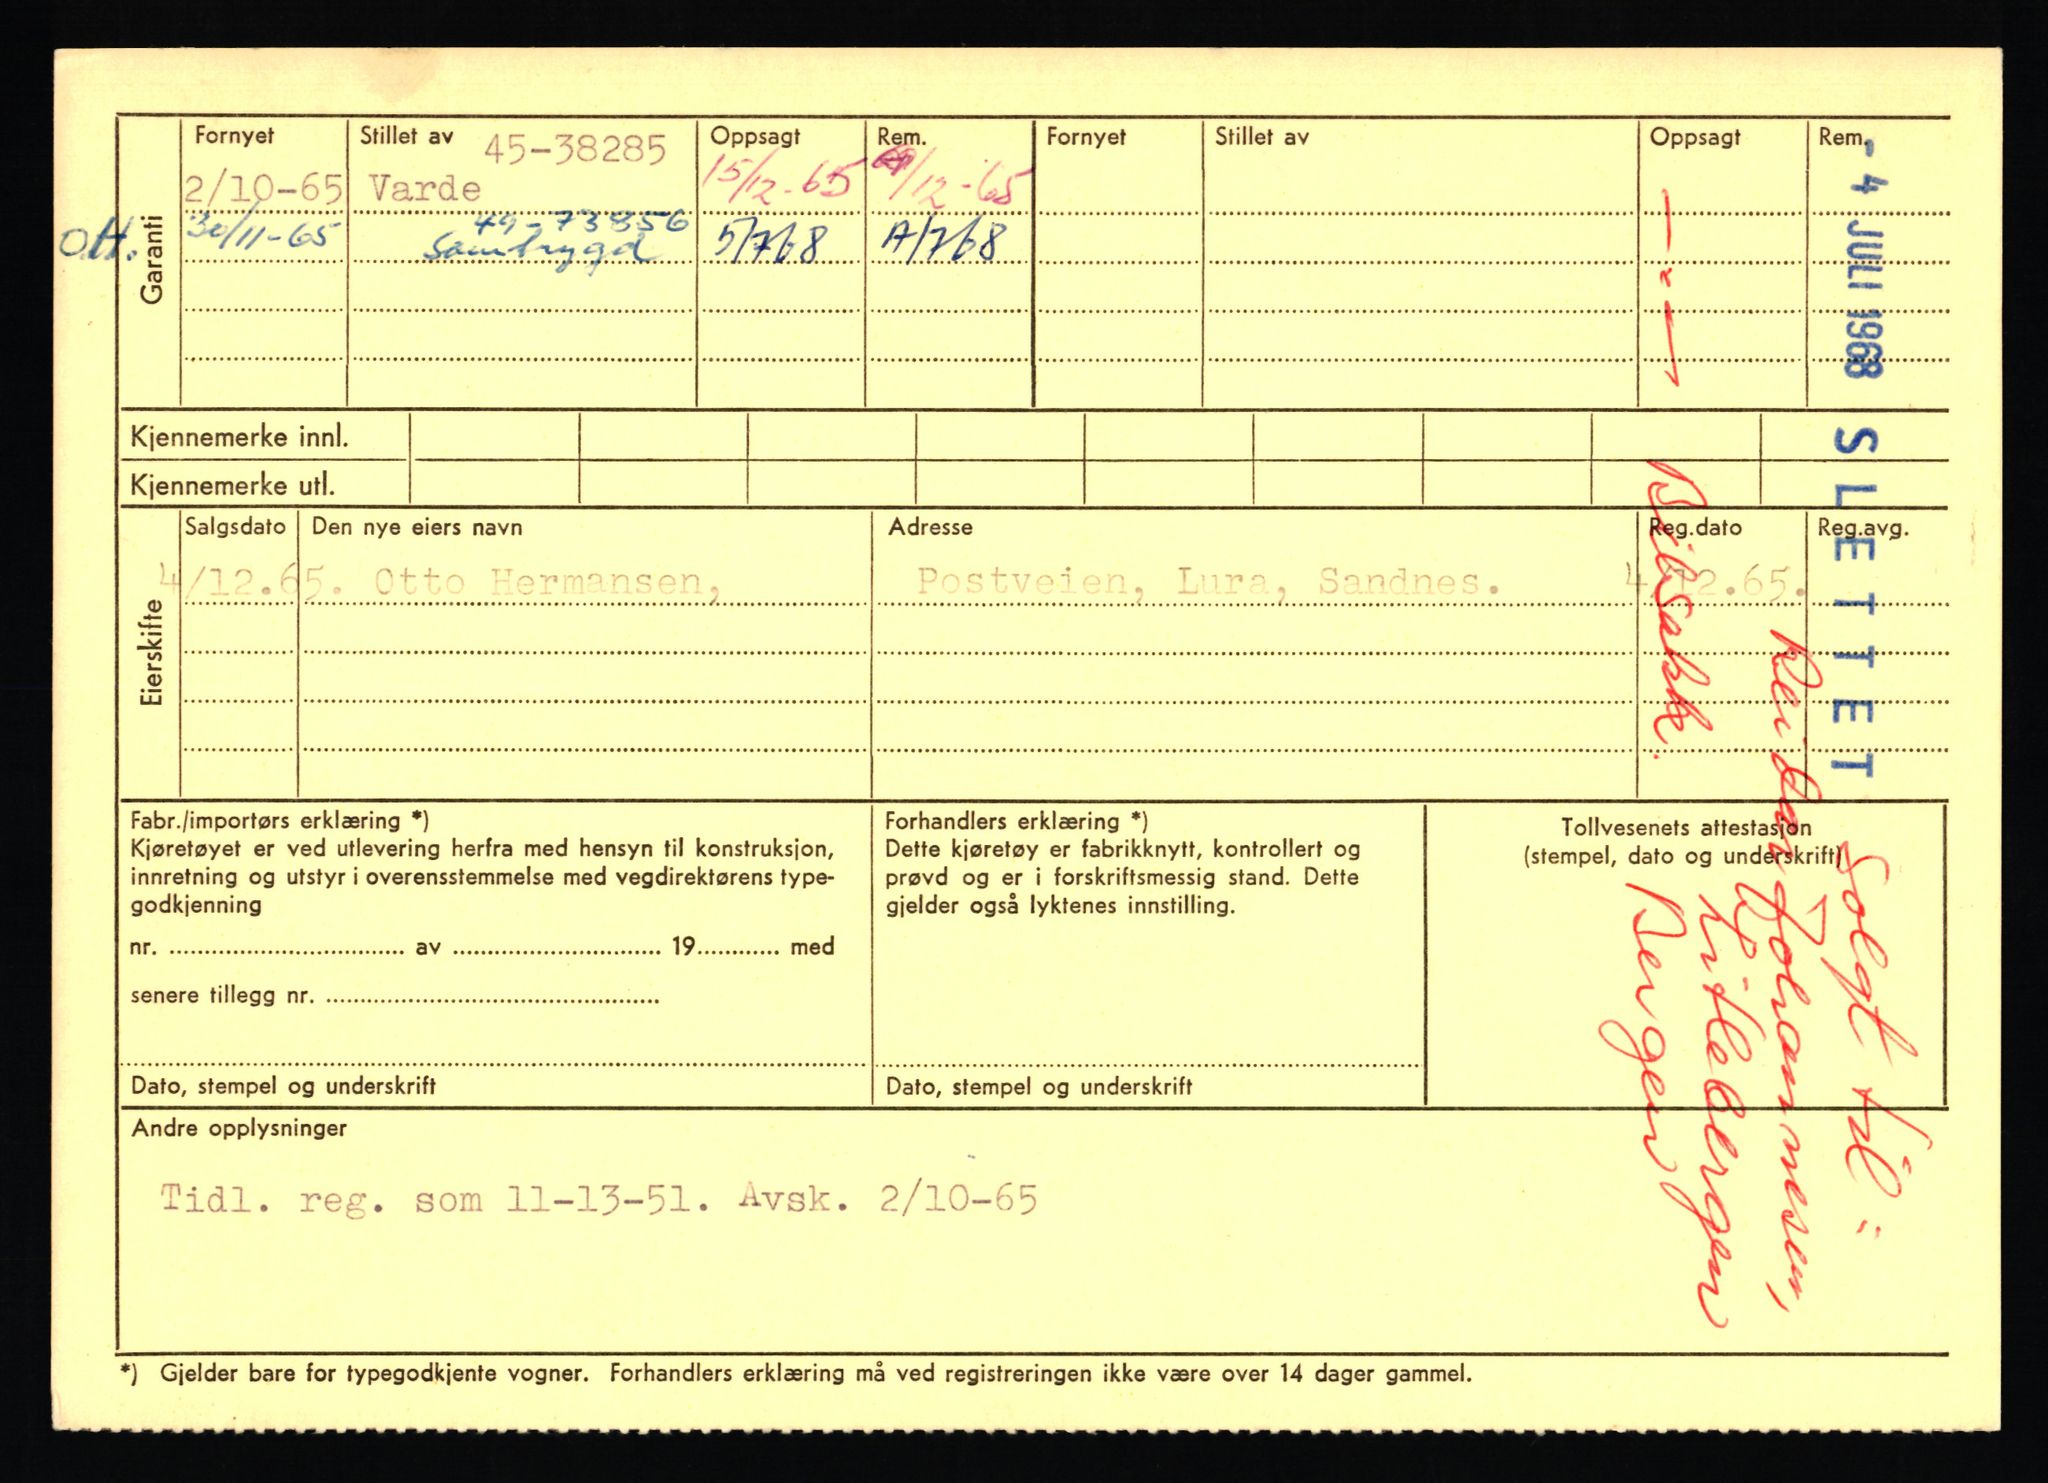 Garanti
Fornyet Stillet av 45-38285 Oppsagt Rem. Fornyet Stillet av Oppsagt Rem.
2/10-65 Varde 15/12-65 /12-65
ott. 30/11-65 49-73856 Sambrygd 5/768 A/768
Kjennemerke innl.
Kjennemerke utl.
Eierskifte
Salgsdato Den nye eiers navn Adresse Reg.dato Reg.avg.
4/12.65. Otto Hermansen, Postveien, Lura, Sandnes. 4/12.65.
Fabr./importørs erklæring *)
Kjøretøyet er ved utlevering herfra med hensyn til konstruksjon,
innretning og utstyr i overensstemmelse med vegdirektørens type-
godkjenning
nr. .......... av .......... 19.......... med
senere tillegg nr. ..........
Dato, stempel og underskrift
Forhandlers erklæring *)
Dette kjøretøy er fabrikknytt, kontrollert og
prøvd og er i forskriftsmessig stand. Dette
gjelder også lyktenes innstilling.
Dato, stempel og underskrift
Tollvesenets attestasjon
(stempel, dato og underskrift)
Andre opplysninger
Tidl. reg. som 11-13-51. Avsk. 2/10-65
*) Gjelder bare for typegodkjente vogner. Forhandlers erklæring må ved registreringen ikke være over 14 dager gammel.
- 4 JULI 1968 SLETTET
Solgt til:
Reidar Johannesen,
Kiflebergen
Bergen
Bilsakk.